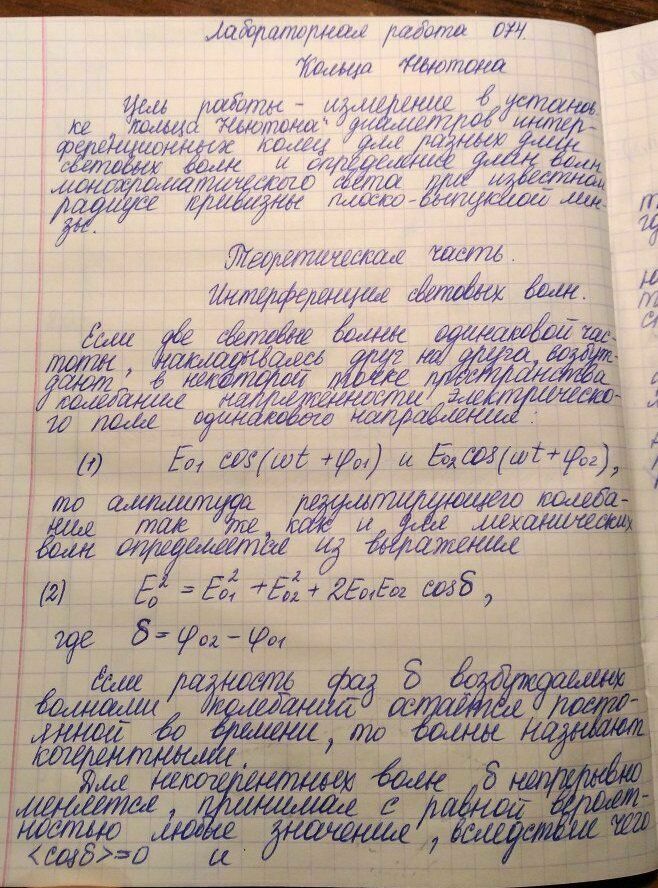 Лабораторная работа 074.
Кольца Ньютона
Цель работы - измерение в установ-
ке „кольца Ньютона" диаметров интер-
ференционных колец для разных длин
световых волн и определение длин волн
монохроматического света при известном
радиусе кривизны плоско-выпуклой лин-
зы.
Теоретическая часть.
Интерференция световых волн.
Если две световые волны одинаковой час-
тоты, накладываясь друг на друга, возбуж-
дают в некоторой точке пространства
колебания напряженности электрическо-
го поля одинакового направления:
(1) E01 cos(ωt + φ01) и E02 cos(ωt + φ02),
то амплитуда результирующего колеба-
ния так же, как и для механических
волн определяется из выражения
(2) E₀² = E₀₁² + E₀₂² + 2E01E02 cosδ,
где δ = φ02 - φ01
Если разность фаз δ возбуждаемых
волнами колебаний остаётся посто-
янной во времени, то волны называют
когерентными.
Для некогерентных волн δ непрерывно
меняется, принимая с равной вероят-
ностью любые значения, вследствие чего
<cosδ>=0 и